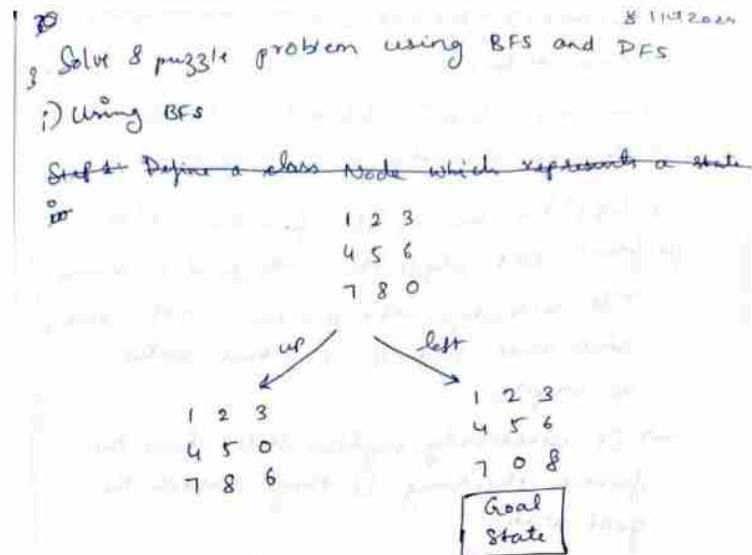 Solve 8 puzzle problem using BFS and DFS
i) Using BFS
Step 1: Define a class Node which represents a state
in
1 2 3
4 5 6
7 8 0
up left
1 2 3
4 5 0
7 8 6
1 2 3
4 5 6
7 0 8
Goal
State